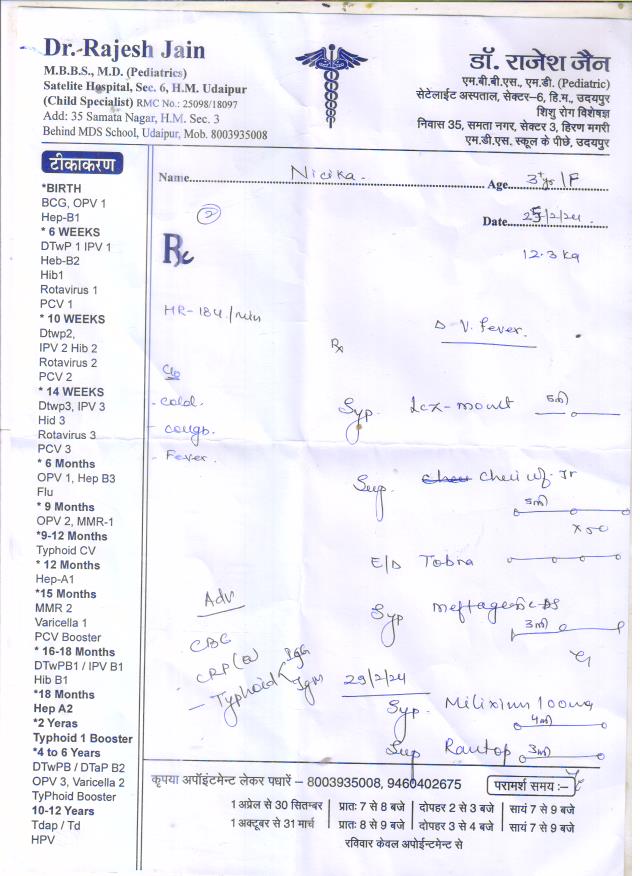 Dr. Rajesh Jain
M.B.B.S., M.D. (Pediatrics)
Satelite Hospital, Sec. 6, H.M. Udaipur
(Child Specialist) RMC No.: 25098/18097
Add: 35 Samata Nagar, H.M. Sec. 3
Behind MDS School, Udaipur, Mob. 8003935008
डॉ. राजेश जैन
एम.बी.बी.एस., एम.डी. (Pediatric)
सेटेलाईट अस्पताल, सेक्टर–6, हि.म., उदयपुर
शिशु रोग विशेषज्ञ
निवास 35, समता नगर, सेक्टर 3, हिरण मगरी
एम.डी.एस. स्कूल के पीछे, उदयपुर
टीकाकरण
*BIRTH
BCG, OPV 1
Hep-B1
* 6 WEEKS
DTwP 1 IPV 1
Heb-B2
Hib1
Rotavirus 1
PCV 1
* 10 WEEKS
Dtwp2,
IPV 2 Hib 2
Rotavirus 2
PCV 2
* 14 WEEKS
Dtwp3, IPV 3
Hid 3
Rotavirus 3
PCV 3
* 6 Months
OPV 1, Hep B3
Flu
* 9 Months
OPV 2, MMR-1
*9-12 Months
Typhoid CV
* 12 Months
Hep-A1
*15 Months
MMR 2
Varicella 1
PCV Booster
* 16-18 Months
DTwPB1 / IPV B1
Hib B1
*18 Months
Hep A2
*2 Yeras
Typhoid 1 Booster
*4 to 6 Years
DTwPB / DTaP B2
OPV 3, Varicella 2
TyPhoid Booster
10-12 Years
Tdap / Td
HPV
Name Age 3+yr/F
Date /2/24
12.3 kg
2
Rx
HR-184/min
V. Fever.
Rx
C/o
- cold.
- cough.
- Fever.
Syp. 5ml
Syp. Jr
5ml
E/D Tobra
Syp Meftagesic DS
3ml
Adv
CBC
- CRP
- Typhoid IgG
IgM
29/2/24
Syp. Milixim 100mg
4ml
Syp Rantop 3ml
कृपया अपॉइंटमेन्ट लेकर पधारें – 8003935008, 9460402675
परामर्श समय :–
1 अप्रेल से 30 सितम्बर | प्रातः 7 से 8 बजे | दोपहर 2 से 3 बजे | सायं 7 से 9 बजे
1 अक्टूबर से 31 मार्च | प्रातः 8 से 9 बजे | दोपहर 3 से 4 बजे | सायं 7 से 9 बजे
रविवार केवल अपोईन्टमेण्ट से